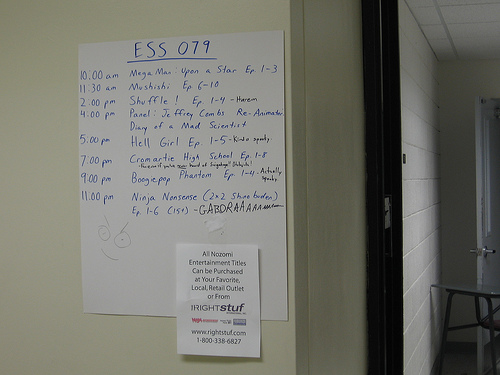 ESS 079
10.00 am Mega Man: Upon a Star Ep. 1-3
11.30 am Mushishi Ep. 6-10
2.00 pm Shuffle! Ep. 1-4 - Harem
4.00 pm Panel: Jeffrey Combs Re-Animator:
Diary of a Mad Scientist
5.00 pm Hell Girl Ep. 1-5 - Kinda spooky.
7.00 pm Cromartie High School Ep. 1-8
9.00 pm Boogiepop Phantom Ep. 1-4. Actually
spooky
11.00 pm Ninja Nonsense (2x2 Shinobuden)
Ep. 1-6 (15+) -
All Nozomi
Entertainment Titles
Can be Purchased
at Your Favorite,
Local, Retail Outlet
or From
RIGHTstuf
www.rightstuf.com
1-800-338-6827